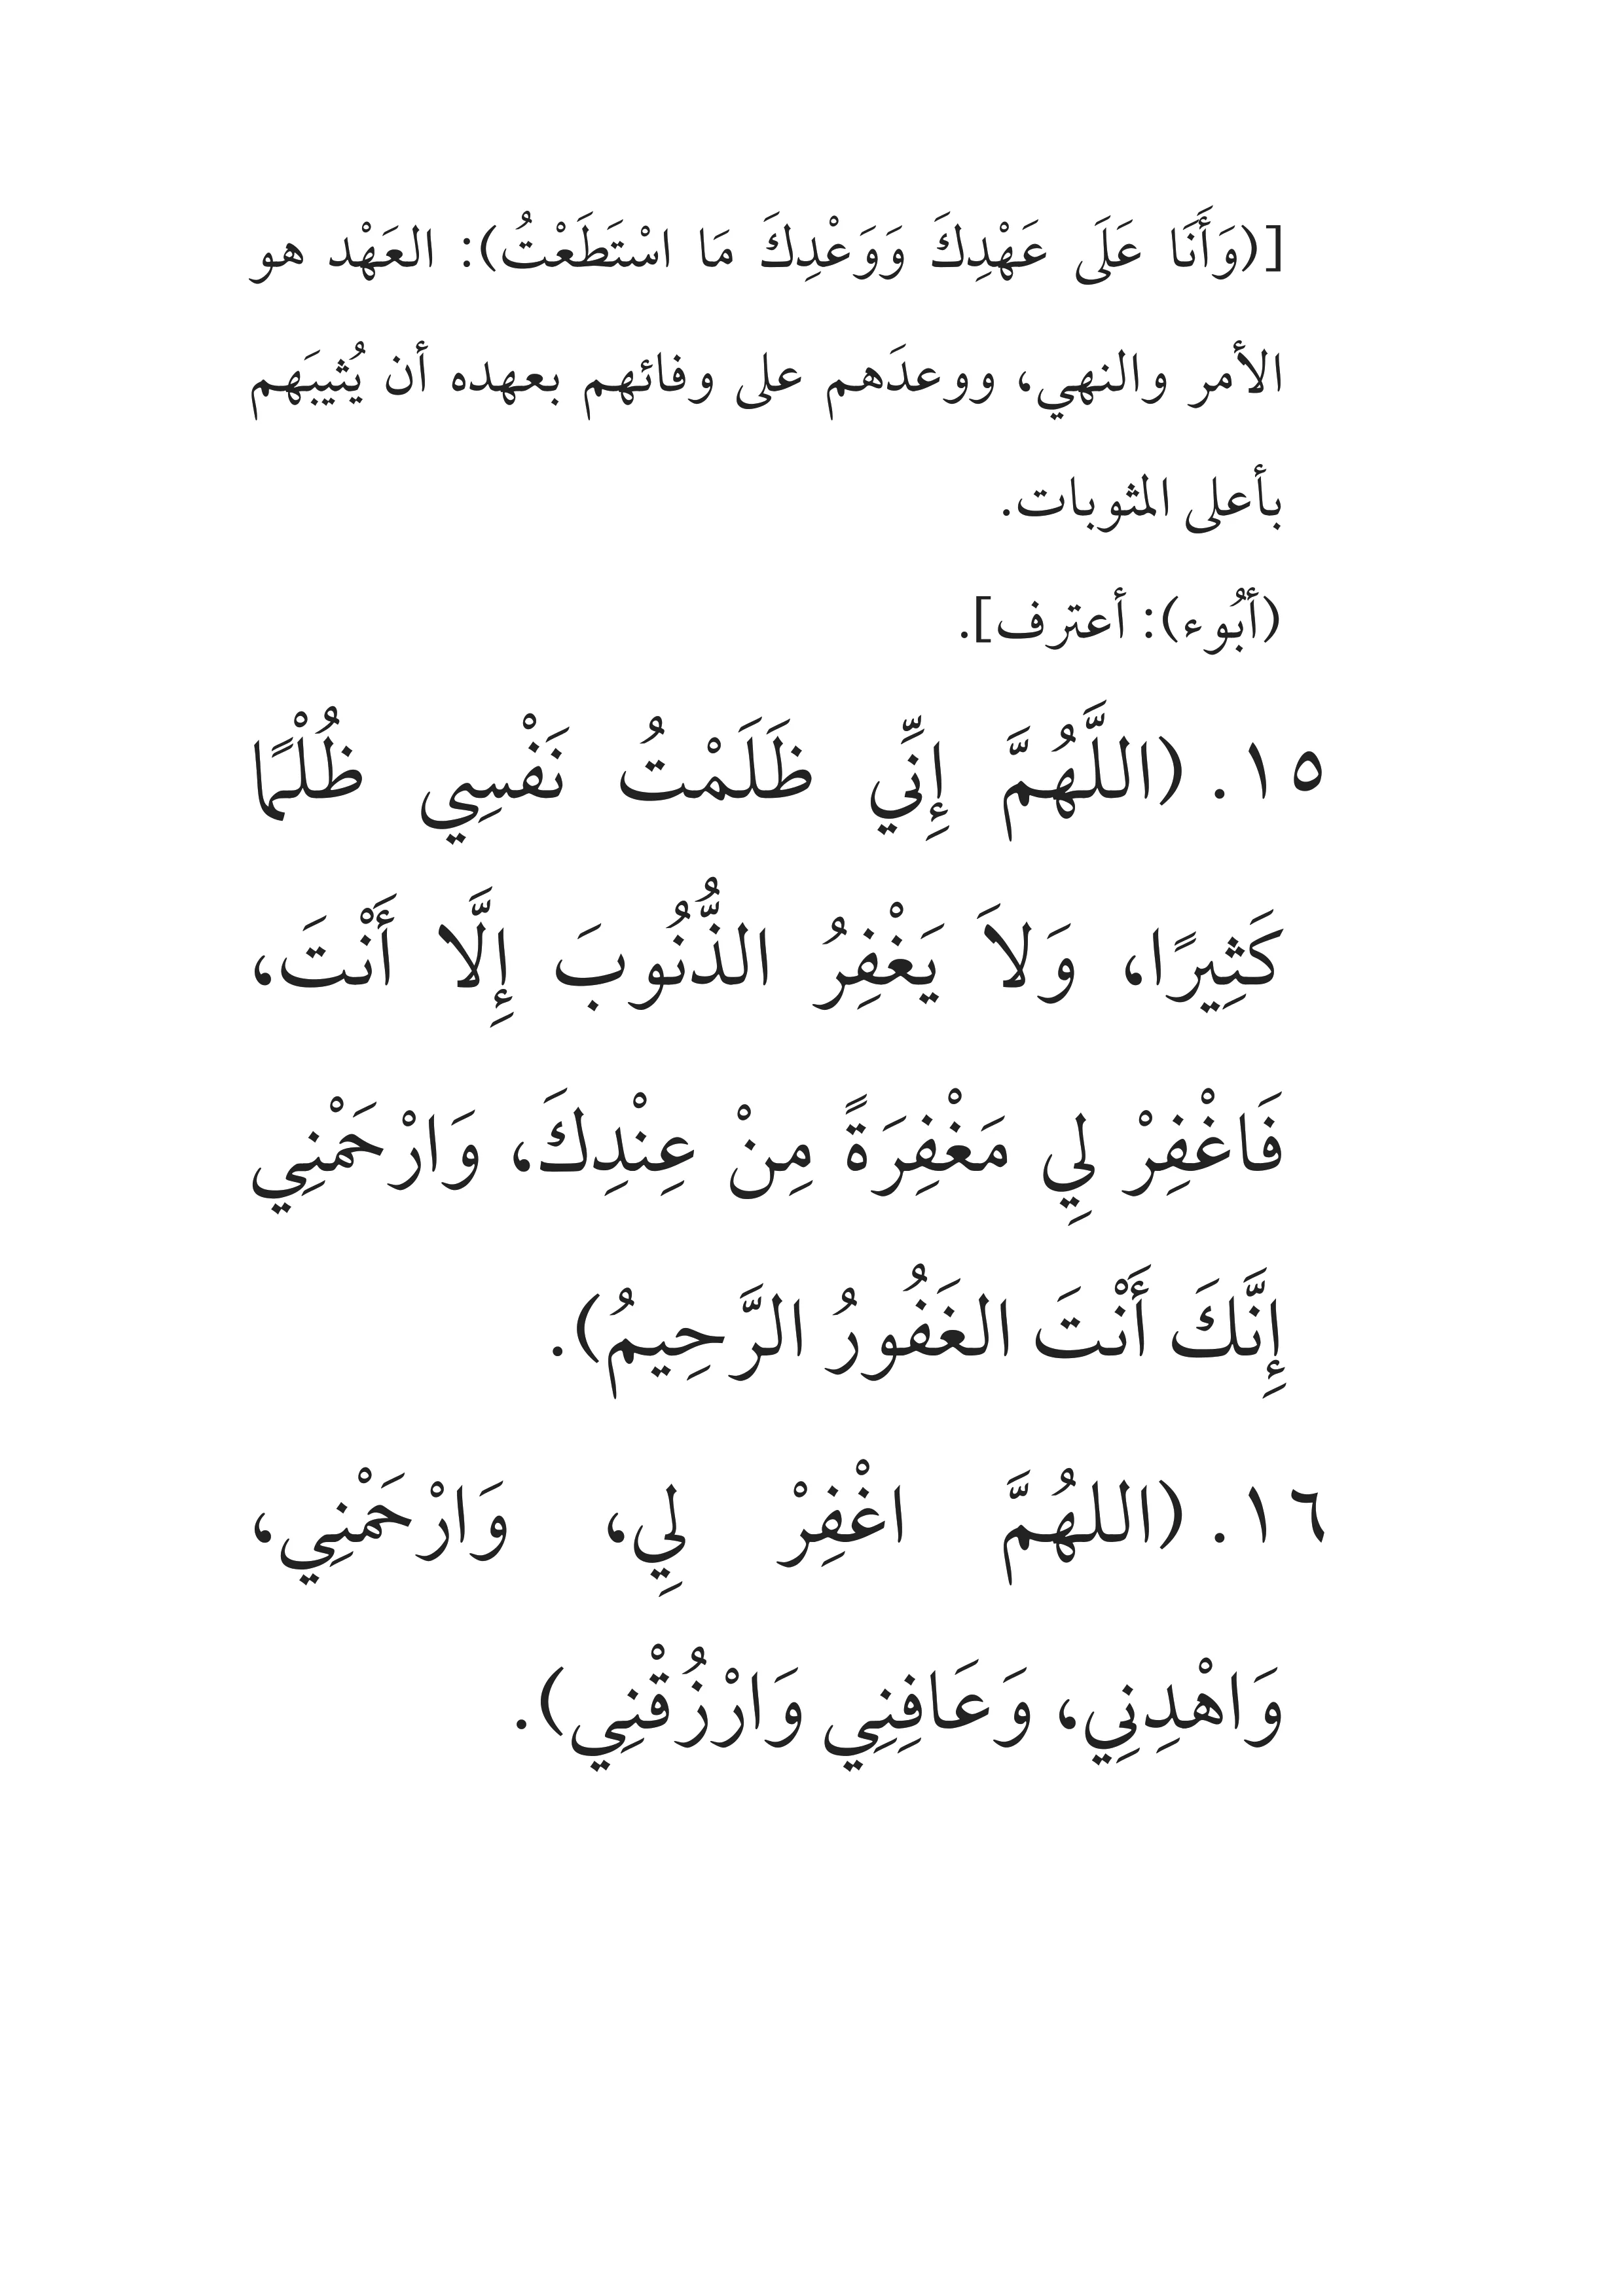 [(وَأَنَا عَلَى عَهْدِكَ وَوَعْدِكَ مَا اسْتَطَعْتُ): العَهْد هو
الأمر والنهي، ووعدَهم على وفائهم بعهده أن يُثيبَهم
بأعلى المثوبات.
(أَبُوء): أعترف].
١٥. (اللَّهُمَّ إِنِّي ظَلَمْتُ نَفْسِي ظُلْمًا
كَثِيرًا، وَلاَ يَغْفِرُ الذُّنُوبَ إِلَّا أَنْتَ،
فَاغْفِرْ لِي مَغْفِرَةً مِنْ عِنْدِكَ، وَارْحَمْنِي
إِنَّكَ أَنْتَ الغَفُورُ الرَّحِيمُ).
١٦. (اللهُمَّ اغْفِرْ لِي، وَارْحَمْنِي،
وَاهْدِنِي، وَعَافِنِي وَارْزُقْنِي).